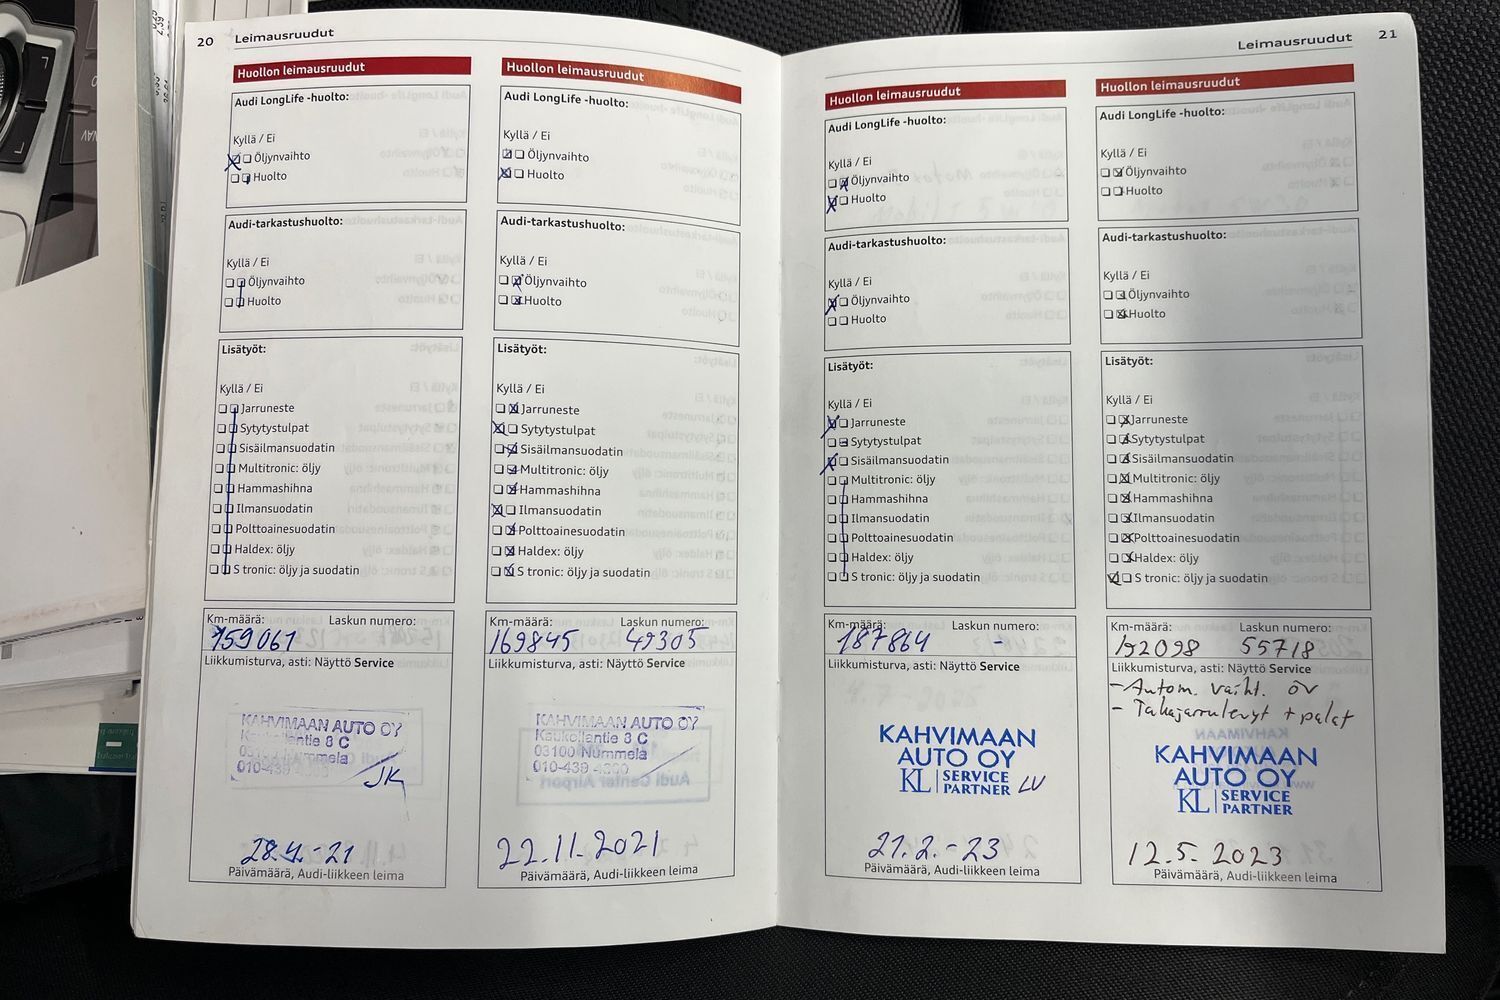 20 Leimausruudut
Huollon leimausruudut
Audi LongLife -huolto:
Kyllä / Ei
Öljynvaihto
Huolto
Audi-tarkastushuolto:
Kyllä / Ei
Öljynvaihto
Huolto
Lisätyöt:
Kyllä / Ei
Jarruneste
Sytytystulpat
Sisäilmansuodatin
Multitronic: öljy
Hammashihna
Ilmansuodatin
Polttoainesuodatin
Haldex: öljy
S tronic: öljy ja suodatin
Km-määrä: Laskun numero:
159061
Liikkumisturva, asti: Näyttö Service
KAHVIMAAN AUTO OY
JK
28.4.-21
Päivämäärä, Audi-liikkeen leima
Huollon leimausruudut
Audi LongLife -huolto:
Kyllä / Ei
Öljynvaihto
Huolto
Audi-tarkastushuolto:
Kyllä / Ei
Öljynvaihto
Huolto
Lisätyöt:
Kyllä / Ei
Jarruneste
Sytytystulpat
Sisäilmansuodatin
Multitronic: öljy
Hammashihna
Ilmansuodatin
Polttoainesuodatin
Haldex: öljy
S tronic: öljy ja suodatin
Km-määrä: Laskun numero:
169845 49305
Liikkumisturva, asti: Näyttö Service
KAHVIMAAN AUTO OY
03100 Nummela
22.11.2021
Päivämäärä, Audi-liikkeen leima
Leimausruudut 21
Huollon leimausruudut
Audi LongLife -huolto:
Kyllä / Ei
Öljynvaihto
Huolto
Audi-tarkastushuolto:
Kyllä / Ei
Öljynvaihto
Huolto
Lisätyöt:
Kyllä / Ei
Jarruneste
Sytytystulpat
Sisäilmansuodatin
Multitronic: öljy
Hammashihna
Ilmansuodatin
Polttoainesuodatin
Haldex: öljy
S tronic: öljy ja suodatin
Km-määrä: Laskun numero:
187864 -
Liikkumisturva, asti: Näyttö Service
KAHVIMAAN
AUTO OY
KL SERVICE
PARTNER LV
Päivämäärä, Audi-liikkeen leima
Huollon leimausruudut
Audi LongLife -huolto:
Kyllä / Ei
Öljynvaihto
Huolto
Audi-tarkastushuolto:
Kyllä / Ei
Öljynvaihto
Huolto
Lisätyöt:
Kyllä / Ei
Jarruneste
Sytytystulpat
Sisäilmansuodatin
Multitronic: öljy
Hammashihna
Ilmansuodatin
Polttoainesuodatin
Haldex: öljy
S tronic: öljy ja suodatin
Km-määrä: Laskun numero:
192098 55718
Liikkumisturva, asti: Näyttö Service
- Autom. vaiht. öv
- Takajarrulevyt + palat
KAHVIMAAN
AUTO OY
KL SERVICE
PARTNER
12.5. 2023
Päivämäärä, Audi-liikkeen leima